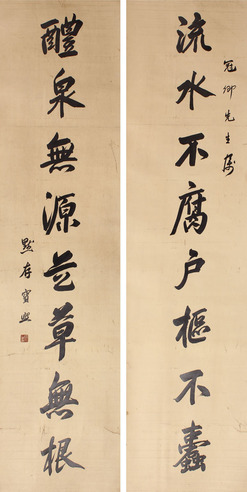 流水不腐戶樞不蠹
冠卿先生屬
醴泉無源芝草無根
默存寶熙